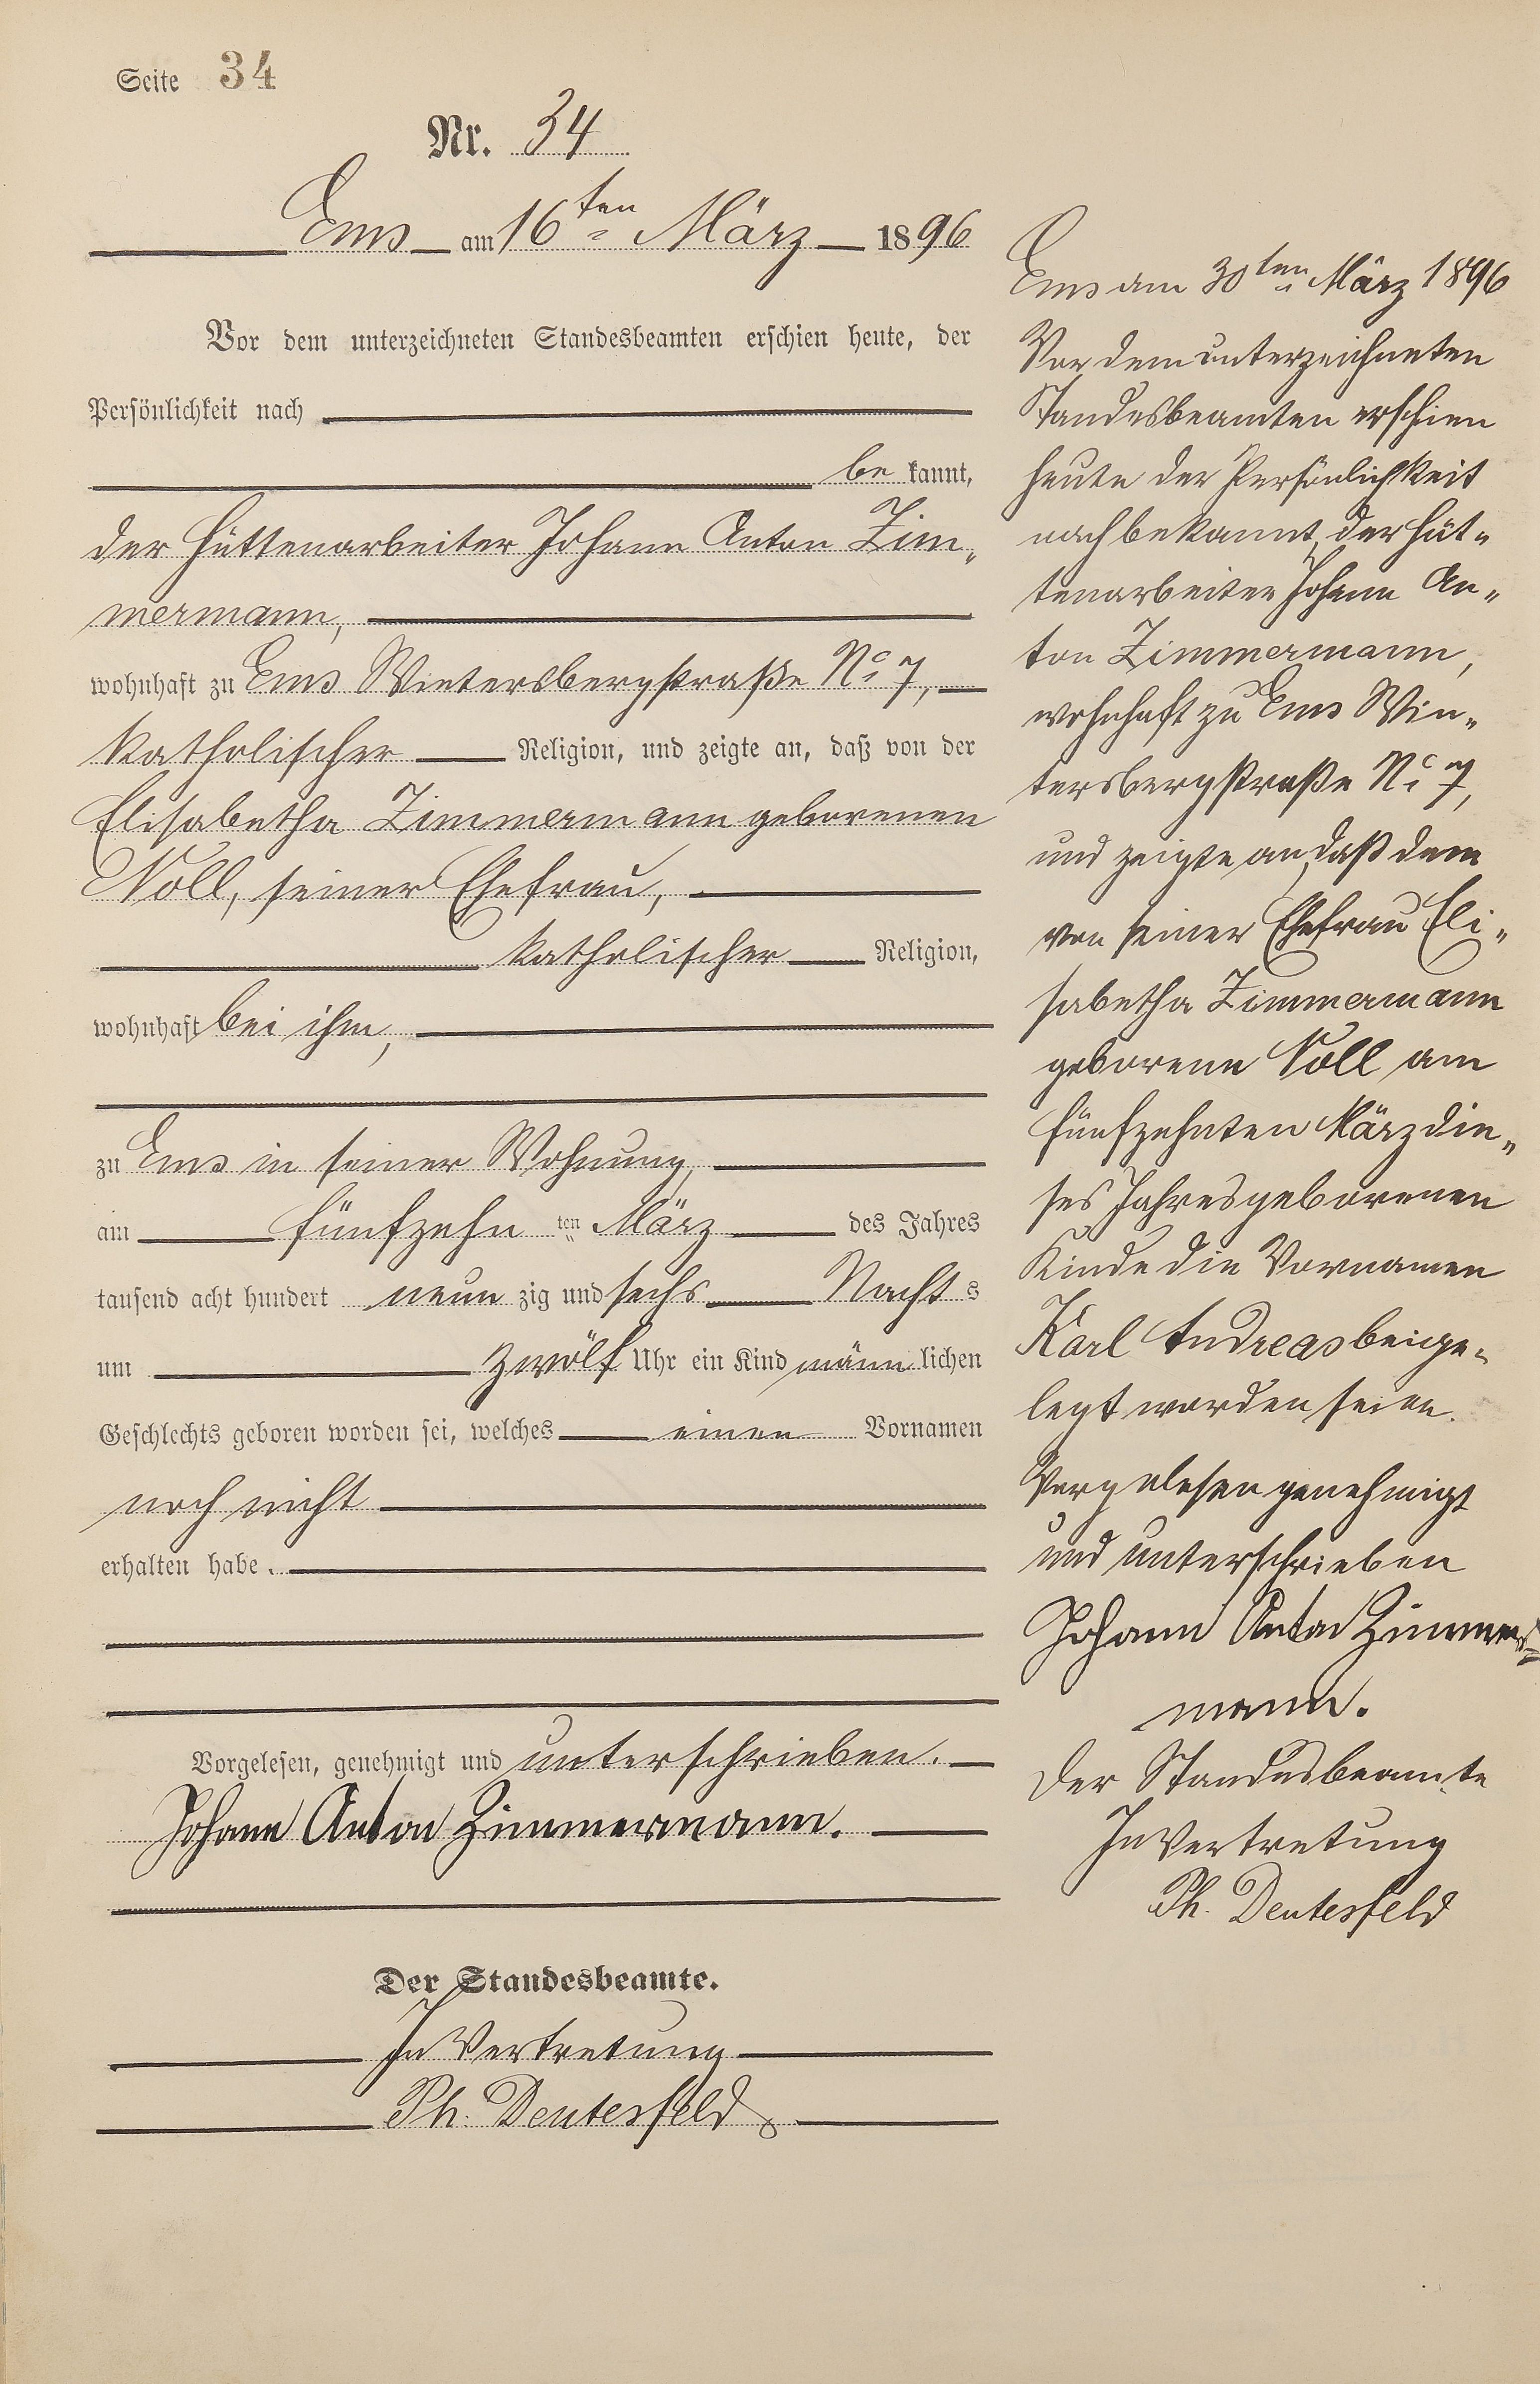 Seite 34
Nr. 34
Ems am 16ten März 1896
Vor dem unterzeichneten Standesbeamten erschien heute, der
Persönlichkeit nach
be kannt,
der Hüttenarbeiter Johann Anton Zim„
mermann,
wohnhaft zu Ems Wintersbergstraße No 7,
katholischer Religion, und zeigte an, daß von der
Elisabetha Zimmermann geborenen
Noll, seiner Ehefrau,
katholischer Religion,
wohnhaft bei ihm,
zu Ems in seiner Wohnung,
am fünfzehn ten März des Jahres
tausend acht hundert neun zig und sechs Nacht s
um zwölf Uhr ein Kind männ lichen
Geschlechts geboren worden sei, welches einen Vornamen
noch nicht
erhalten habe.
Vorgelesen, genehmigt und unterschrieben.
Johann Anton Zimmermann.
Der Standesbeamte.
In Vertretung
Ph. Deutesfeld
Ems am 30ten März 1896
Vor dem unterzeichneten
Standesbeamten erschien
heute der Persönlichkeit
nach bekannt, der Hüt„
tenarbeiter Johann An„
ton Zimmermann,
wohnhaft zu Ems Win„
tersbergstraße No 7,
und zeigte an, daß dem
von seiner Ehefrau Eli„
sabetha Zimmermann
geborene Noll am
fünfzehnten März die„
ses Jahres geborenen
Kinde die Vornamen
Karl Andreas beige„
legt worden seien.
Vorgelesen genehmigt
und unterschrieben
Johann Anton Zimmer„
mann.
Der Standesbeamte
In Vertretung
Ph. Deutesfeld